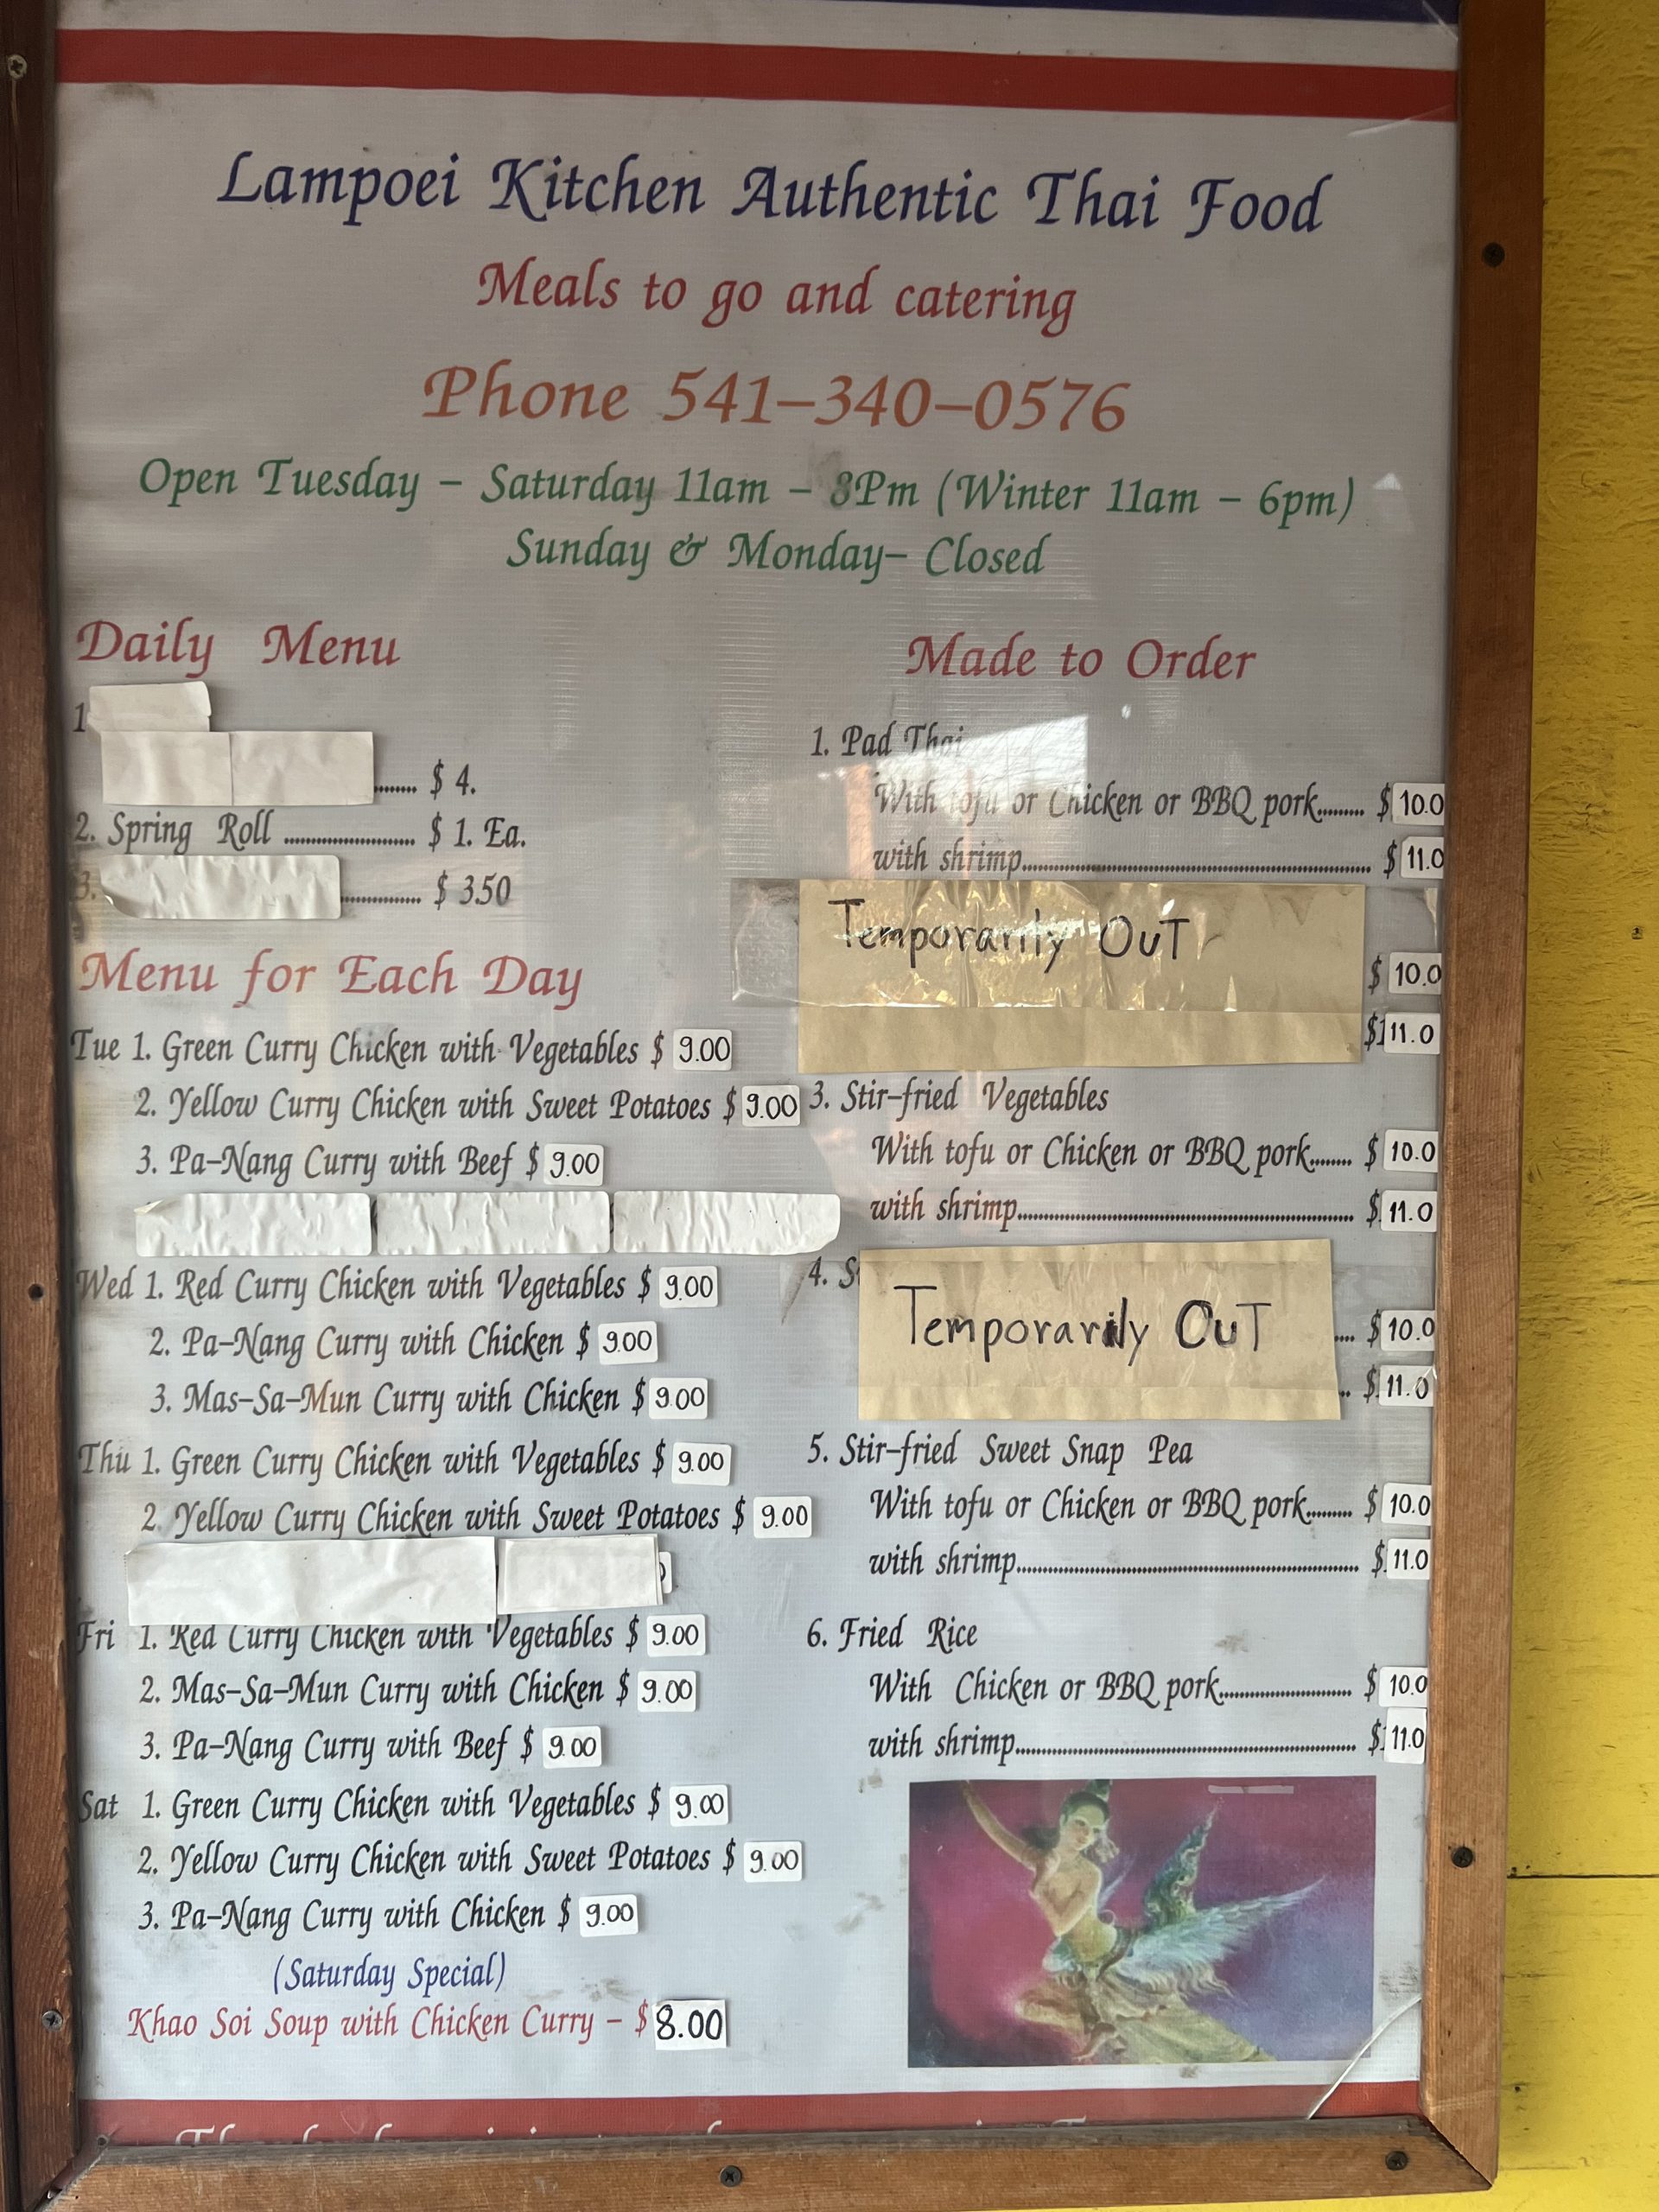 Lampoei Kitchen Authentic Thai Food
Meals to go and catering
Phone 541-340-0576
Open Tuesday - Saturday 11am - 8Pm (Winter 11am - 6pm)
Sunday & Monday- Closed
Daily Menu
1
........ $ 4.
2. Spring Roll ........................ $ 1. Ea.
3. ............... $ 3.50
Menu for Each Day
Tue 1. Green Curry Chicken with Vegetables $ 9.00
2. Yellow Curry Chicken with Sweet Potatoes $ 9.00
3. Pa-Nang Curry with Beef $ 9.00
Wed 1. Red Curry Chicken with Vegetables $ 9.00
2. Pa-Nang Curry with Chicken $ 9.00
3. Mas-Sa-Mun Curry with Chicken $ 9.00
Thu 1. Green Curry Chicken with Vegetables $ 9.00
2. Yellow Curry Chicken with Sweet Potatoes $ 9.00
Fri 1. Red Curry Chicken with Vegetables $ 9.00
2. Mas-Sa-Mun Curry with Chicken $ 9.00
3. Pa-Nang Curry with Beef $ 9.00
Sat 1. Green Curry Chicken with Vegetables $ 9.00
2. Yellow Curry Chicken with Sweet Potatoes $ 9.00
3. Pa-Nang Curry with Chicken $ 9.00
(Saturday Special)
Khao Soi Soup with Chicken Curry - $ 8.00
Made to Order
1. Pad Thai
With tofu or Chicken or BBQ pork......... $ 10.0
with shrimp.................................................. $ 11.0
Temporarily OuT
$ 10.0
$ 11.0
3. Stir-fried Vegetables
With tofu or Chicken or BBQ pork........ $ 10.0
with shrimp.................................................. $ 11.0
4. S
Temporarily OuT
.... $ 10.0
.. $ 11.0
5. Stir-fried Sweet Snap Pea
With tofu or Chicken or BBQ pork......... $ 10.0
with shrimp.................................................. $ 11.0
6. Fried Rice
With Chicken or BBQ pork...................... $ 10.0
with shrimp.................................................. $ 11.0